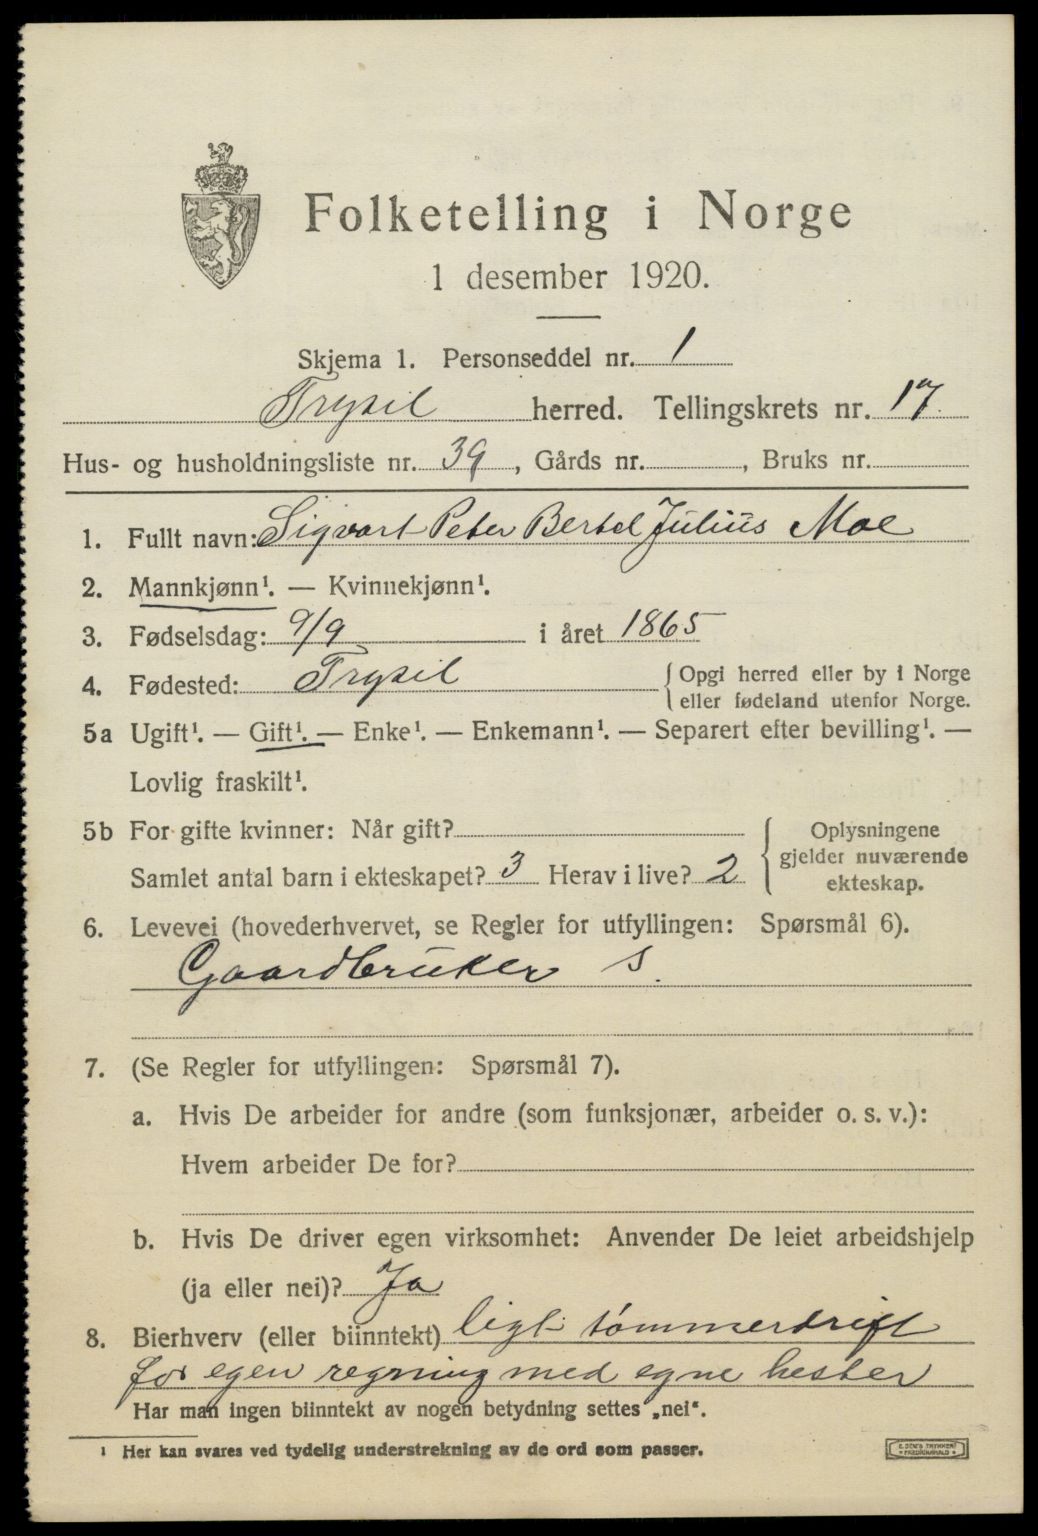 Folketelling i Norge
1 desember 1920.
Skjema 1. Personseddel nr. 1
Trysil herred. Tellingskrets nr. 17
Hus- og husholdningsliste nr. 39, Gårds nr. , Bruks nr.
1. Fullt navn: Sigvart Peter Bertel Julius Moe
2. Mannkjønn¹. — Kvinnekjønn¹.
3. Fødselsdag: 9/9 i året 1865
4. Fødested: Trysil { Opgi herred eller by i Norge
eller fødeland utenfor Norge.
5a Ugift¹. — Gift¹. — Enke¹. — Enkemann¹. — Separert efter bevilling¹. —
Lovlig fraskilt¹.
5b For gifte kvinner: Når gift? { Oplysningene
gjelder nuværende
Samlet antal barn i ekteskapet? 3 Herav i live? 2
ekteskap.
6. Levevei (hovederhvervet, se Regler for utfyllingen: Spørsmål 6).
Gaardbruker s.
7. (Se Regler for utfyllingen: Spørsmål 7).
a. Hvis De arbeider for andre (som funksjonær, arbeider o. s. v.):
Hvem arbeider De for?
b. Hvis De driver egen virksomhet: Anvender De leiet arbeidshjelp
(ja eller nei)? Ja
8. Bierhverv (eller biinntekt) ligt tømmerdrift
for egen regning med egne hester
Har man ingen biinntekt av nogen betydning settes „nei“.
¹ Her kan svares ved tydelig understrekning av de ord som passer.